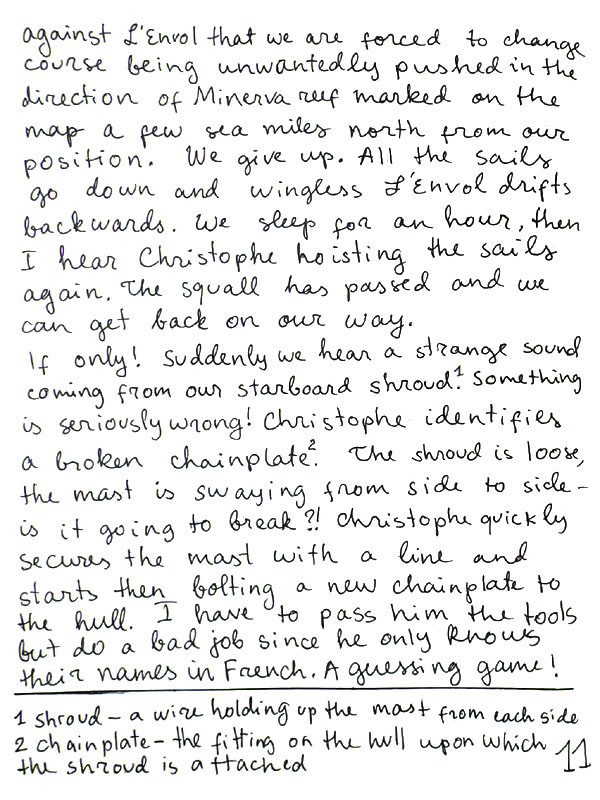 against L'Envol that we are forced to change
course being unwantedly pushed in the
direction of Minerva reef marked on the
map a few sea miles north from our
position. We give up. All the sails
go down and wingless L'Envol drifts
backwards. We sleep for an hour, then
I hear Christophe hoisting the sails
again. The squall has passed and we
can get back on our way.
If only! Suddenly we hear a strange sound
coming from our starboard shroud¹. Something
is seriously wrong! Christophe identifies
a broken chainplate². The shroud is loose,
the mast is swaying from side to side -
is it going to break?! Christophe quickly
secures the mast with a line and
starts then bolting a new chainplate to
the hull. I have to pass him the tools
but do a bad job since he only knows
their names in French. A guessing game!
1 shroud - a wire holding up the mast from each side
2 chainplate - the fitting on the hull upon which
the shroud is attached
11